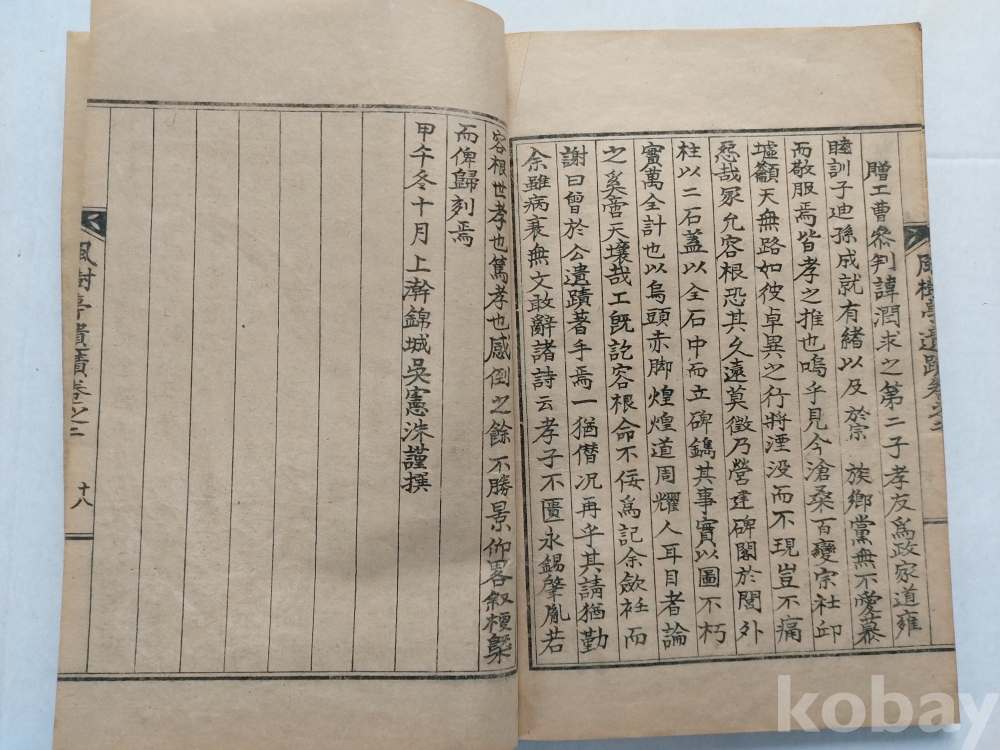 贈工曹叅判諱潤求之第二子孝友爲政家道雍
睦訓子迪孫成就有緒以及於宗族鄉黨無不愛慕
而敬服焉皆孝之推也嗚乎見今滄桑百變宗社邱
墟籲天無路如彼卓異之行將湮没而不現豈不痛
惡哉冢允容根恐其久遠莫徵乃營建碑閣於閭外
柱以二石蓋以全石中而立碑鐫其事實以圖不朽
實萬全計也以烏頭赤脚煌煌道周耀人耳目者論
之奚啻天壤哉工旣訖容根命不佞爲記余斂衽而
謝曰曾於公遺蹟著手焉一猶僭况再乎其請猶勤
余雖病衰無文敢辭諸詩云孝子不匱永錫肇胤若
風樹亭遺蹟卷之二
容根世孝也篤孝也感倒之餘不勝景仰畧叙梗槩
而俾歸刻焉
甲午冬十月上澣錦城吳憲洙謹撰
風樹亭遺蹟卷之二 十八
kobay